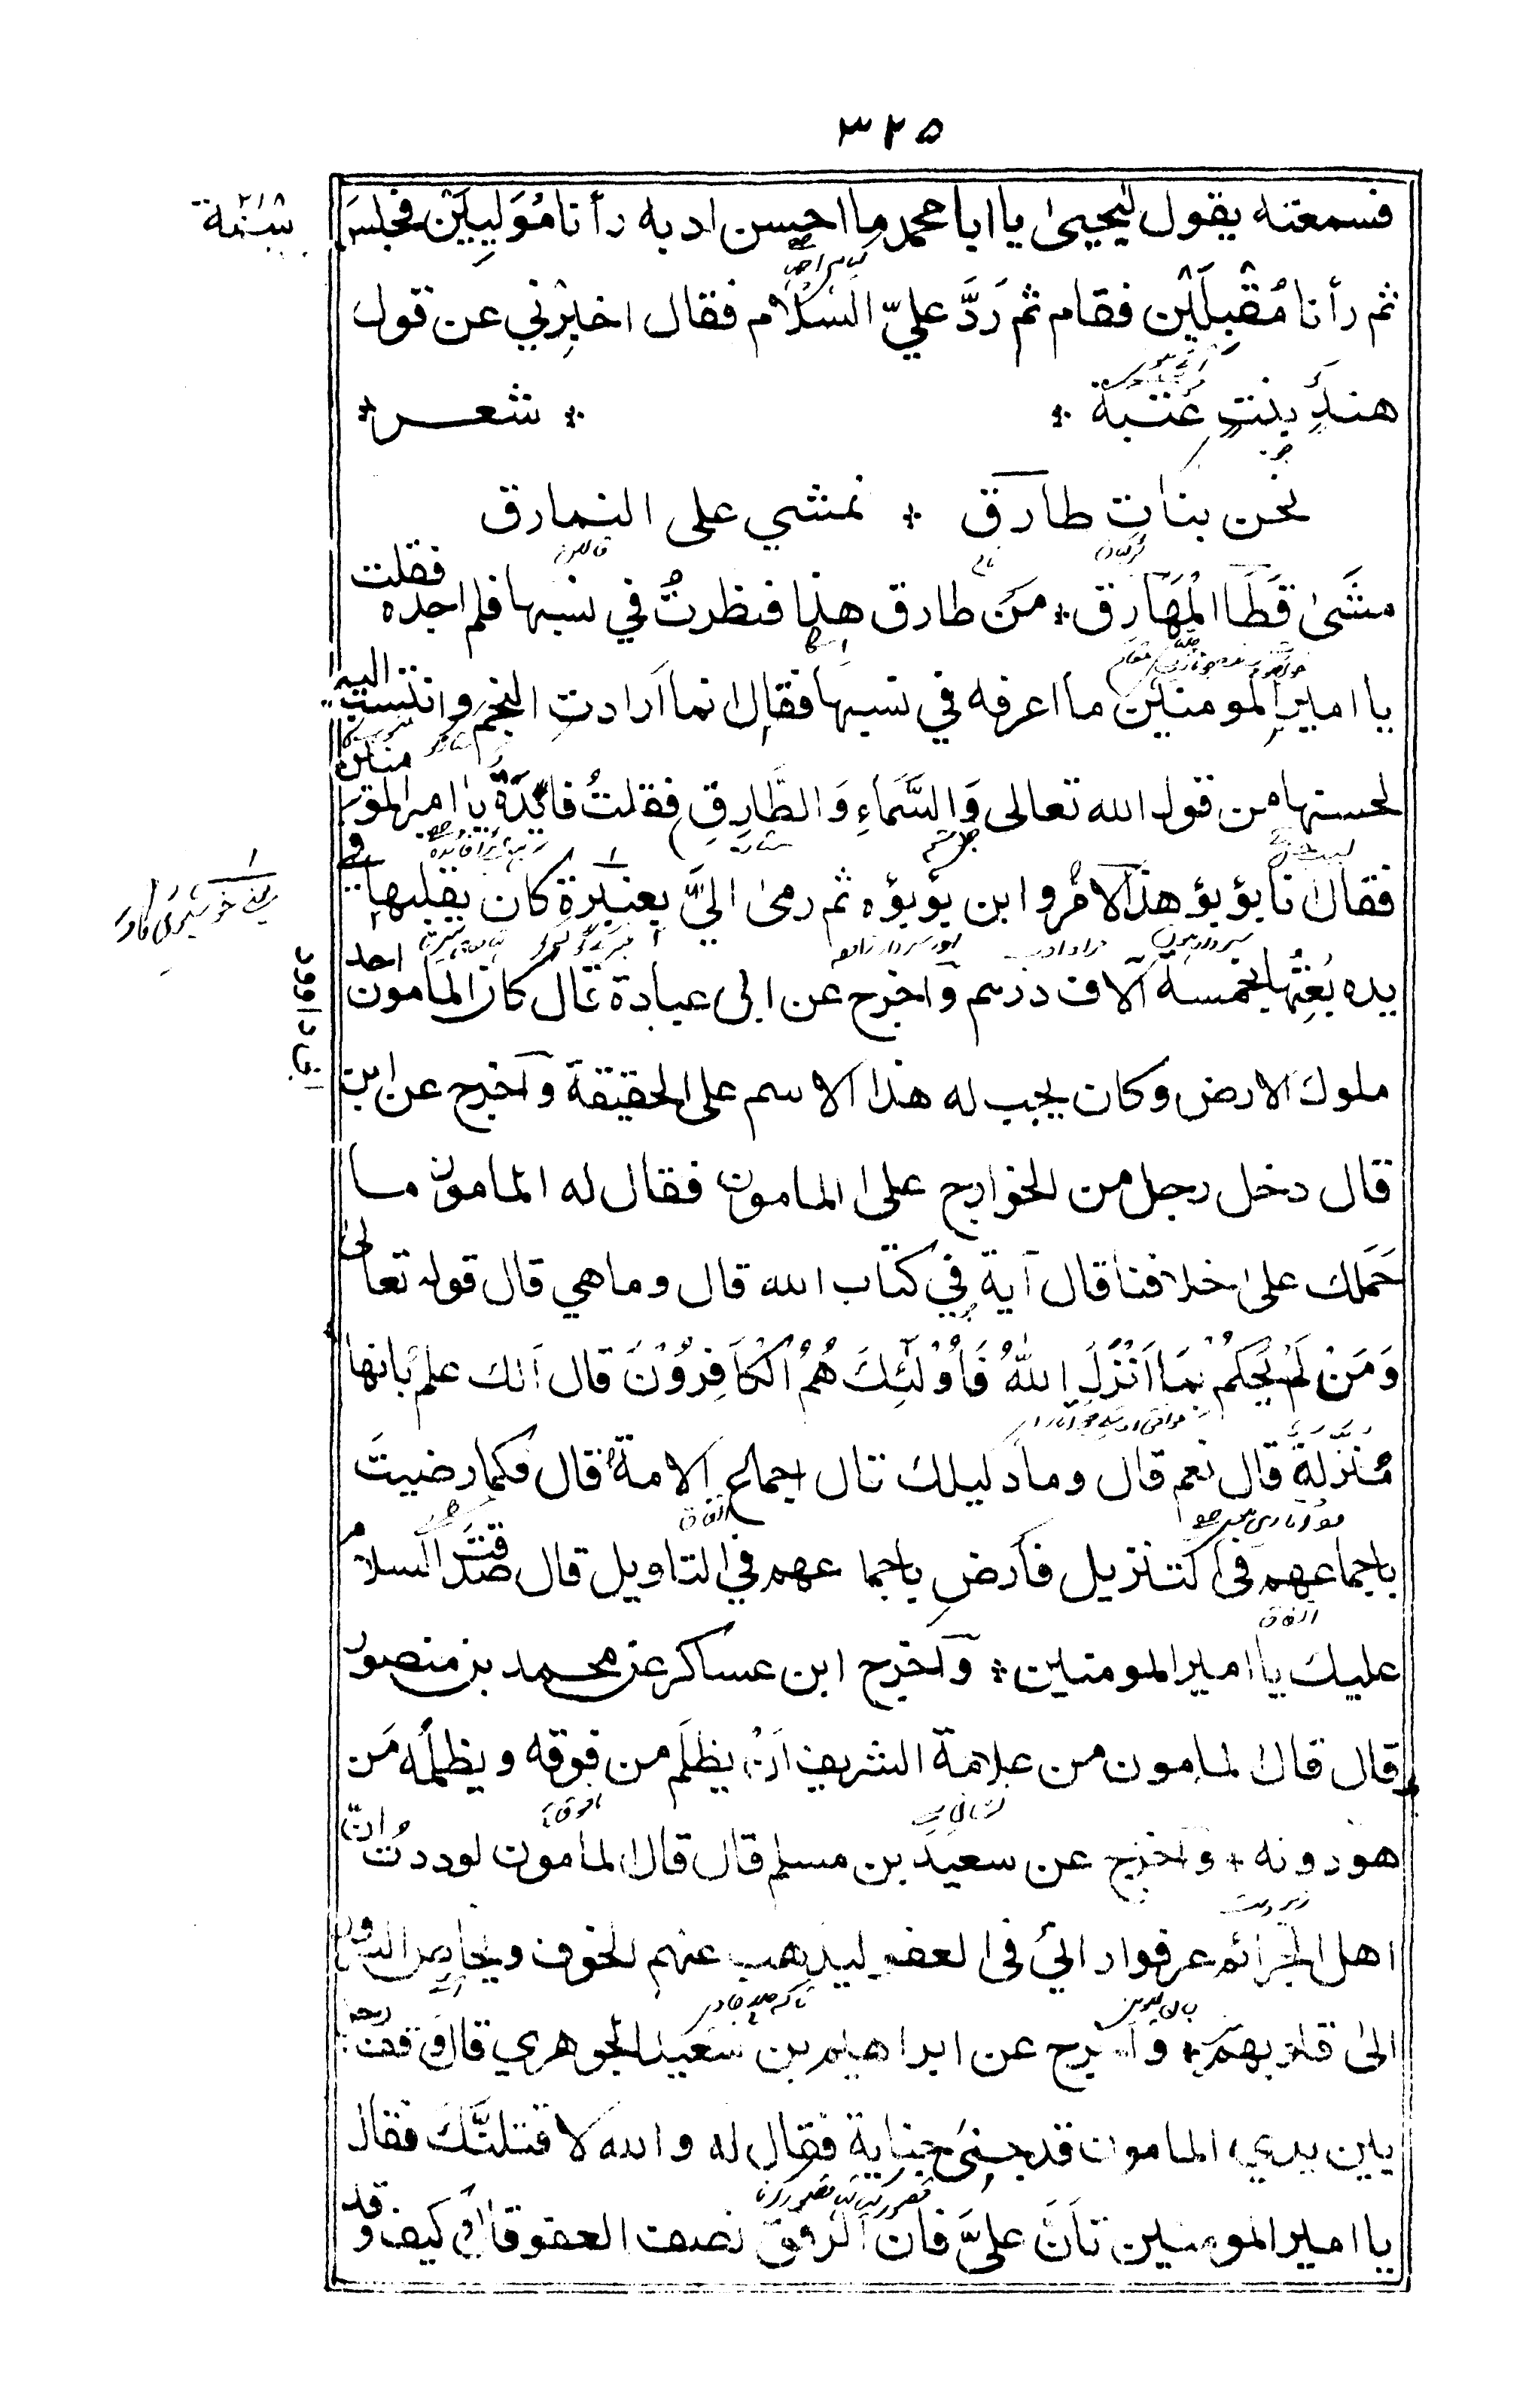 ٣٢٥
فسمعته يقول ليحيىٰ يا ابا محمد ما احسن ادبه رأنا مُوَلِّيَيْن فجلسَ
سنة ٢١٨
ثم رأنا مُقْبِلَيْن فقام ثم رَدَّ عليّ السّلام فقال اخبِرْني عن قول
هندٍ بنتِ عُتبة * * شعر *
نحن بنات طارق * نمشي على النمارق
مشىٰ قَطَا المَهَارِق * مَن طارق هذا فنظرتُ في نسبها فلم اجده فقلت
يا امير المومنين ما اعرفه في نسبها فقال انما ارادتِ النجم وانتسبت اليه
لحسنها من قول الله تعالى وَالسَّمَاءِ وَالطَّارِقِ فقلتُ فائدَة يا امير المومنين
فقال انا بؤبؤ هذا الامر وابن بؤبؤه ثم رمىٰ اليَّ بعنبرة كان يقلبها في
يده بعتُها بخمسة آلاف درسم واخرج عن ابى عبادة قال كان المامون احد
ملوك الارض وكان يجب له هذا الاسم على الحقيقة واخرج عن ابن
ابى داوود
قال دخل رجل من الخوارج على المامون فقال له المامون ما
حَمَلك علىٰ خلافنا قال آية في كتاب الله قال وما هي قال قوله تعالىٰ
وَمَنْ لَمْ يَحْكُمْ بِمَا اَنْزَلَ اللهُ فَاُوْلٰئِكَ هُمُ الْكَافِرُوْنَ قال الك علمٌ بانها
مُنَزَّلة قال نعم قال وما دليلك قال اجماع الامة قال فكما رضيتَ
باجماعهم فى التنزيل فارضِ باجماعهم في التاويل قال صدقتَ السلام
عليك يا امير المومنين * واخرج ابن عساكر عن محمد بن منصور
قال قال المامون من علامة الشريف اَنْ يظلَم من فوقه ويظلمُه مَن
هو دونه * واخرج عن سعيد بن مسلم قال قال المامون لوددتُ انّ
اهل الجرائم عرفوا رائي فى العفو ليذهب عنهم الخوف ويخلص السرور
الىٰ قلوبهم * واخرج عن ابراهيم بن سعيد الجوهري قال وقف رجل
بين يدي المامون قد جنىٰ جناية فقال له والله لاقتلنّكَ فقال
يا امير المومنين تأنَّ عليَّ فان الرفق نصف العفو قال وكيف وقد